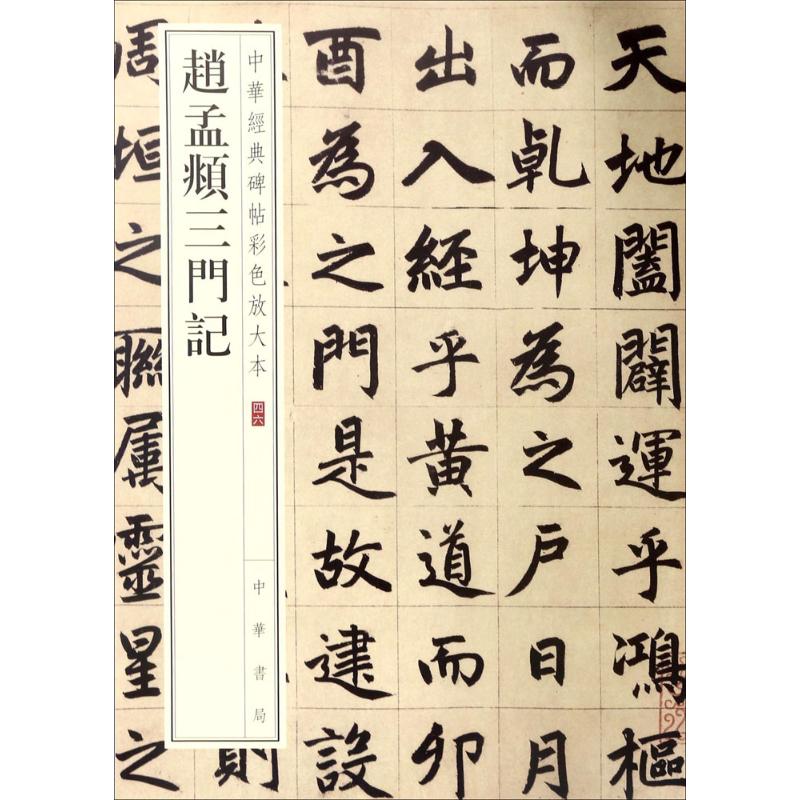 天地闔闢運乎鴻樞
而乹坤為之戶日月
出入經乎黃道而卯
酉為之門是故建設
則
周垣之聯屬靈星之
中華經典碑帖彩色放大本
四六
中華書局
趙孟頫三門記